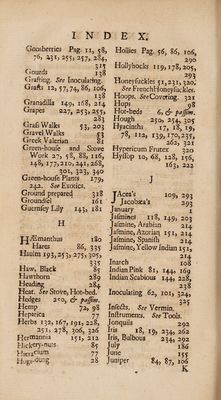 INDEX.
Goosberries Pag. 11, 58,
76, 231, 255, 257, 284,
315
Gourds 138
Grafting. See Inoculating.
Grafts 12, 57, 74, 86, 106,
138
Granadilla 149, 168, 214
Grapes 227, 253, 255,
283
Grass Walks 53, 203
Gravel Walks 53
Greek Valerian 81
Green-house and Stove
Work 27, 58, 88, 116,
148, 177, 210, 241, 268,
301, 323, 340
Green-house Plants 179,
242. See Exotics.
Ground prepared 318
Groundsel 161
Guernsey Lily 143, 181
H
HÆmanthus 180
Hares 86, 335
Haulm 193, 253, 275, 305,
335
Haw, Black 85
Hawthorn 289
Heading 284
Heat. See Stove, Hot-bed.
Hedges 250, & passim.
Hemp 72, 98
Hepatica 77
Herbs 132, 167, 191, 228,
251, 278, 306, 326
Hermannia 151, 211
Hickery-nuts 85
77
28
Hollies Pag. 56, 86, 106,
290
Hollyhocks 119, 178, 205,
293
Honeysuckles 51, 231, 320.
See French Honeysuckles.
Hoops. See Covering. 321
Hops 98
Hot-beds 6, & passim.
Hough 250, 254, 305
Hyacinths 17, 18, 19,
78, 112, 139, 170, 235,
262, 321
Hypericum Frutex 320
Hyssop 10, 68, 128, 156,
163, 222
J
JAcea's 109, 293
Jacobæa's 293
January 1
Jasmines 118, 149, 203
Jasmine, Arabian 214
Jasmine, Azorian 151, 214
Jasmine, Spanish 214
Jasmine, Yellow Indian 151,
214
Inarch 105
Indian Pink 81, 144, 169
Indian Scabious 144, 228,
238
Inoculating 62, 101, 324,
325
Insects. See Vermin.
Instruments. See Tools.
Jonquils 292
Iris 18, 19, 234, 262
Iris, Bulbous 234, 292
July 186
June 155
Juniper 84, 87, 106
K